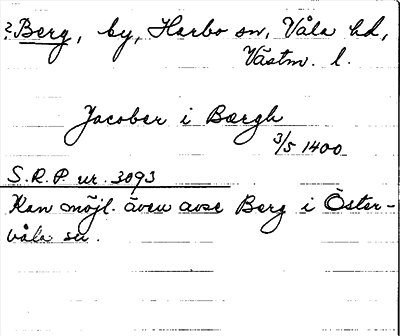 ?Berg, by, Harbo sn, Våla hd,
Västm. l.
Jacober i Bærgh
3/5 1400
S.R.P. nr. 3093
Kan möjl. även avse Berg i Öster-
våla sn.